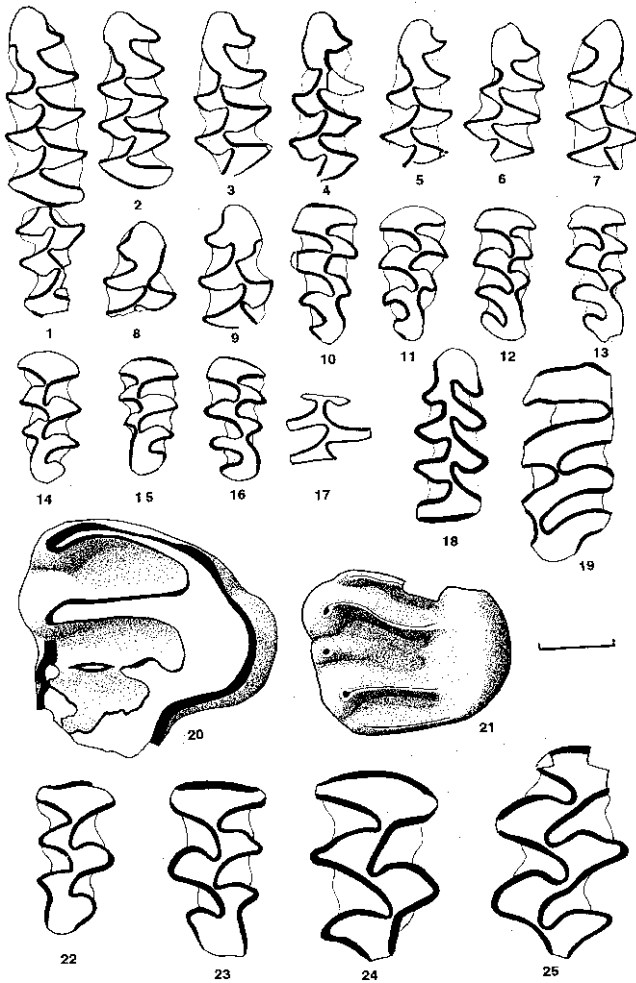 2
3
4
5
6
7
1
8
9
10
11
12
13
14
15
16
17
18
19
20
21
22
23
24
25